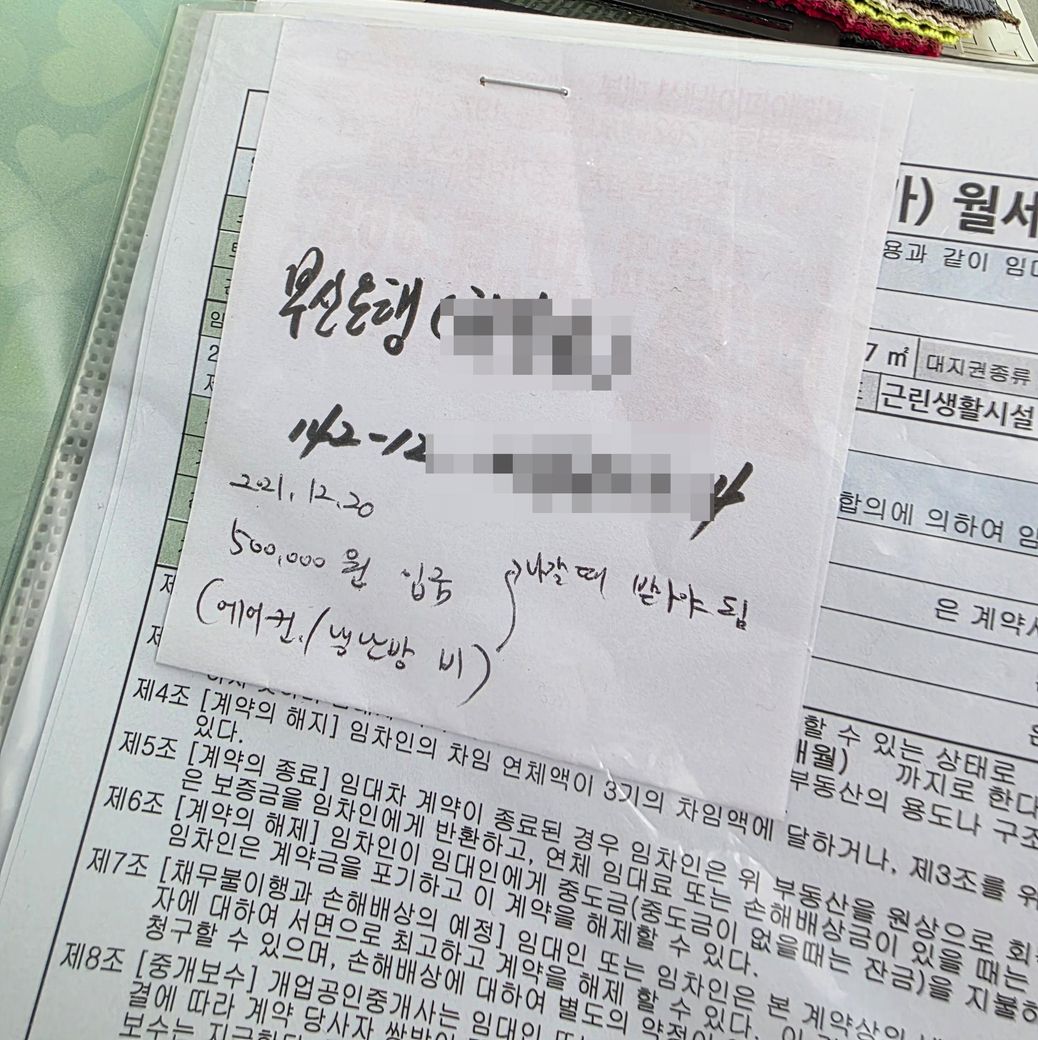 부산은행 (
112-12
2021.12.20
500,000원 입금
(에어컨/냉난방 비)
나갈 때 받아야 됨
가) 월세
용과 같이 임대
7 ㎡ 대지권종류
근린생활시설
합의에 의하여 임
은 계약시
할 수 있는 상태로
개월) 까지로 한다
부동산의 용도나 구조
제4조 [계약의 해지] 임차인의 차임 연체액이 3기의 차임액에 달하거나, 제3조를 위
있다.
제5조 [계약의 종료] 임대차 계약이 종료된 경우 임차인은 위 부동산을 원상으로 회
은 보증금을 임차인에게 반환하고, 연체 임대료 또는 손해배상금이 있을 때는
제6조 [계약의 해제] 임차인이 임대인에게 중도금(중도금이 없을때는 잔금)을 지불하
임차인은 계약금을 포기하고 이 계약을 해제할 수 있다.
제7조 [채무불이행과 손해배상의 예정] 임대인 또는 임차인은 본 계약상의 내
자에 대하여 서면으로 최고하고 계약을 해제 할 수 있다.
청구할 수 있으며, 손해배상에 대하여 별도의 약정이
제8조 [중개보수] 개업공인중개사는 임대인 또는
결에 따라 계약 당사자 쌍방이
보수는 지급한다